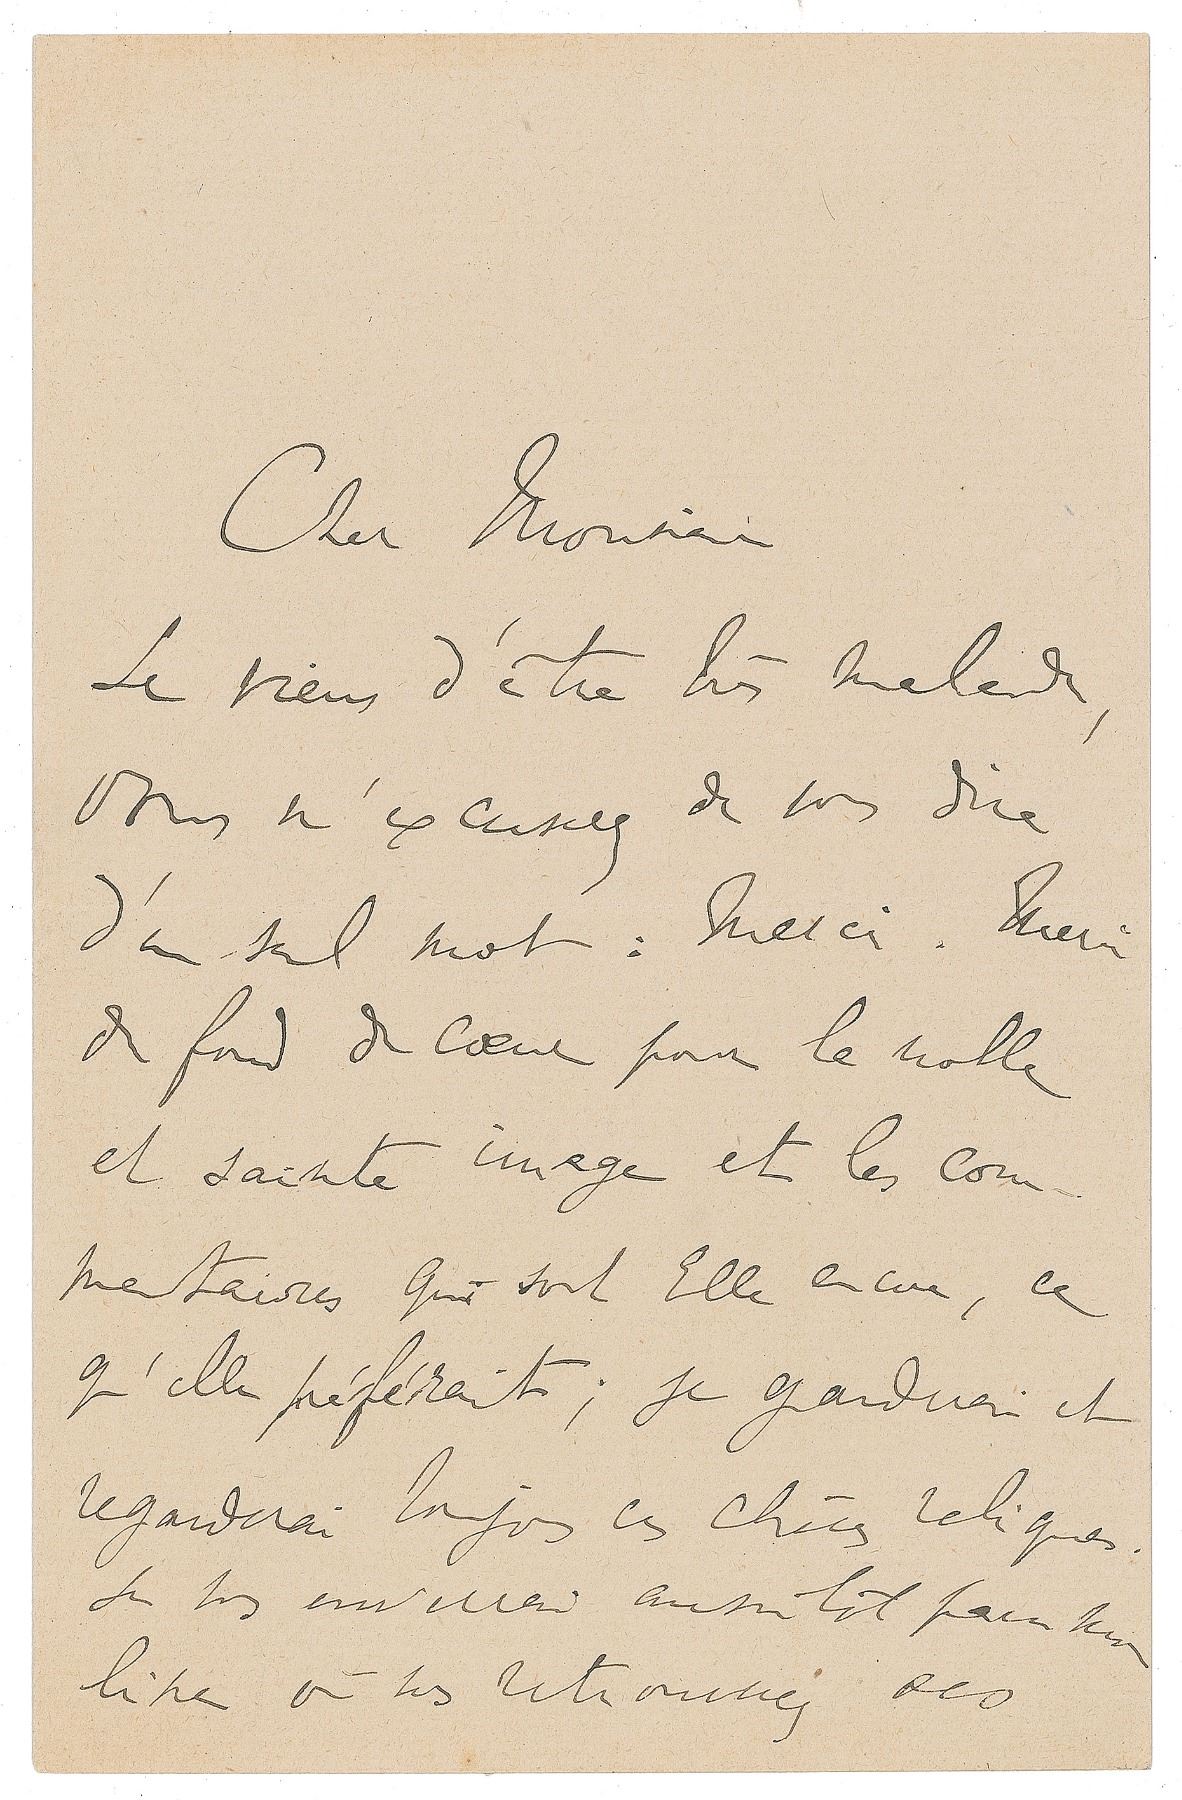 Cher Monsieur
Je viens d'être très malade,
vous m'excuserez de vous dire
d'un seul mot : Merci. Merci
du fond du cœur pour la noble
et sainte image et les com-
mentaires qui sont Elle encore, ce
qu'elle préférait ; je garderai et
regarderai toujours ces chères reliques.
Je vous enverrai aussitôt paru mon
livre où vous retrouverez ses